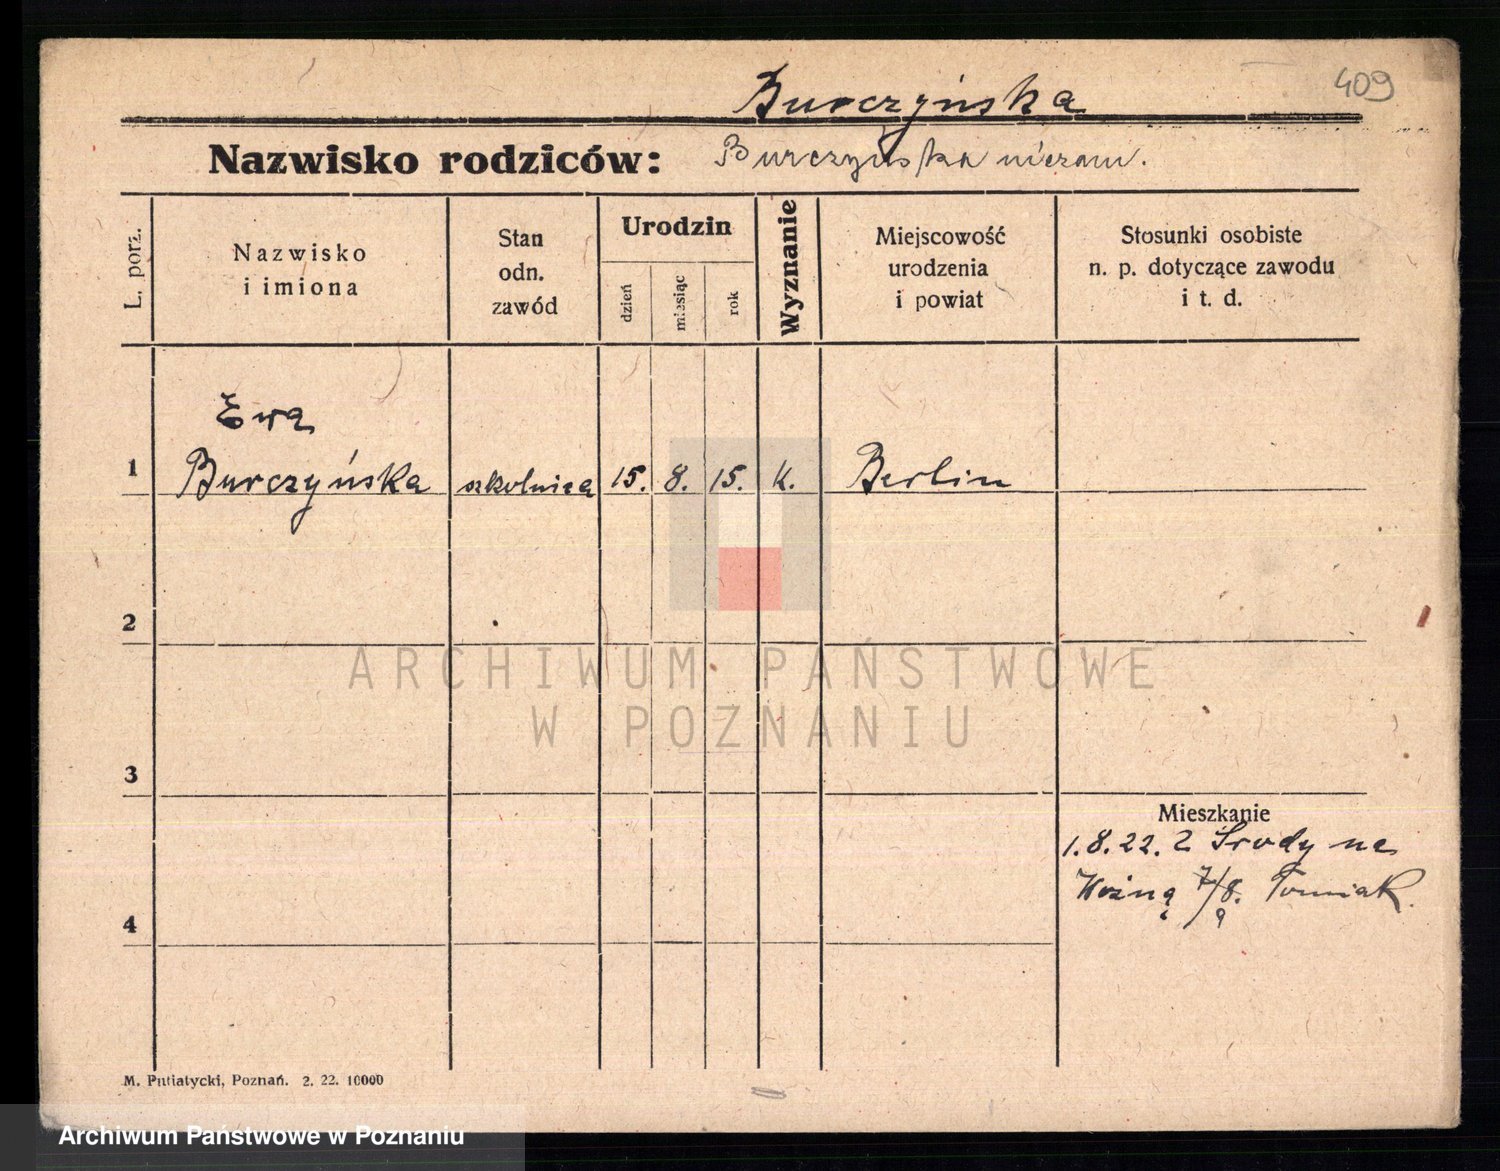 409
Burczyńska
Nazwisko rodziców: Burczyńska niezam.
L. porz.
Nazwisko
i imiona
Stan
odn.
zawód
Urodzin
dzień
miesiąc
rok
Wyznanie
Miejscowość
urodzenia
i powiat
Stosunki osobiste
n. p. dotyczące zawodu
i t. d.
Ewa
1 Burczyńska szkolnica 15. 8. 15. k. Berlin
2
ARCHIWUM PAŃSTWOWE
W POZNANIU
3
Mieszkanie
1.8.22. z Środy na
Woźną 7/8. Tomiak.
4
M. Putiatycki, Poznań. 2. 22. 10000
Archiwum Państwowe w Poznaniu